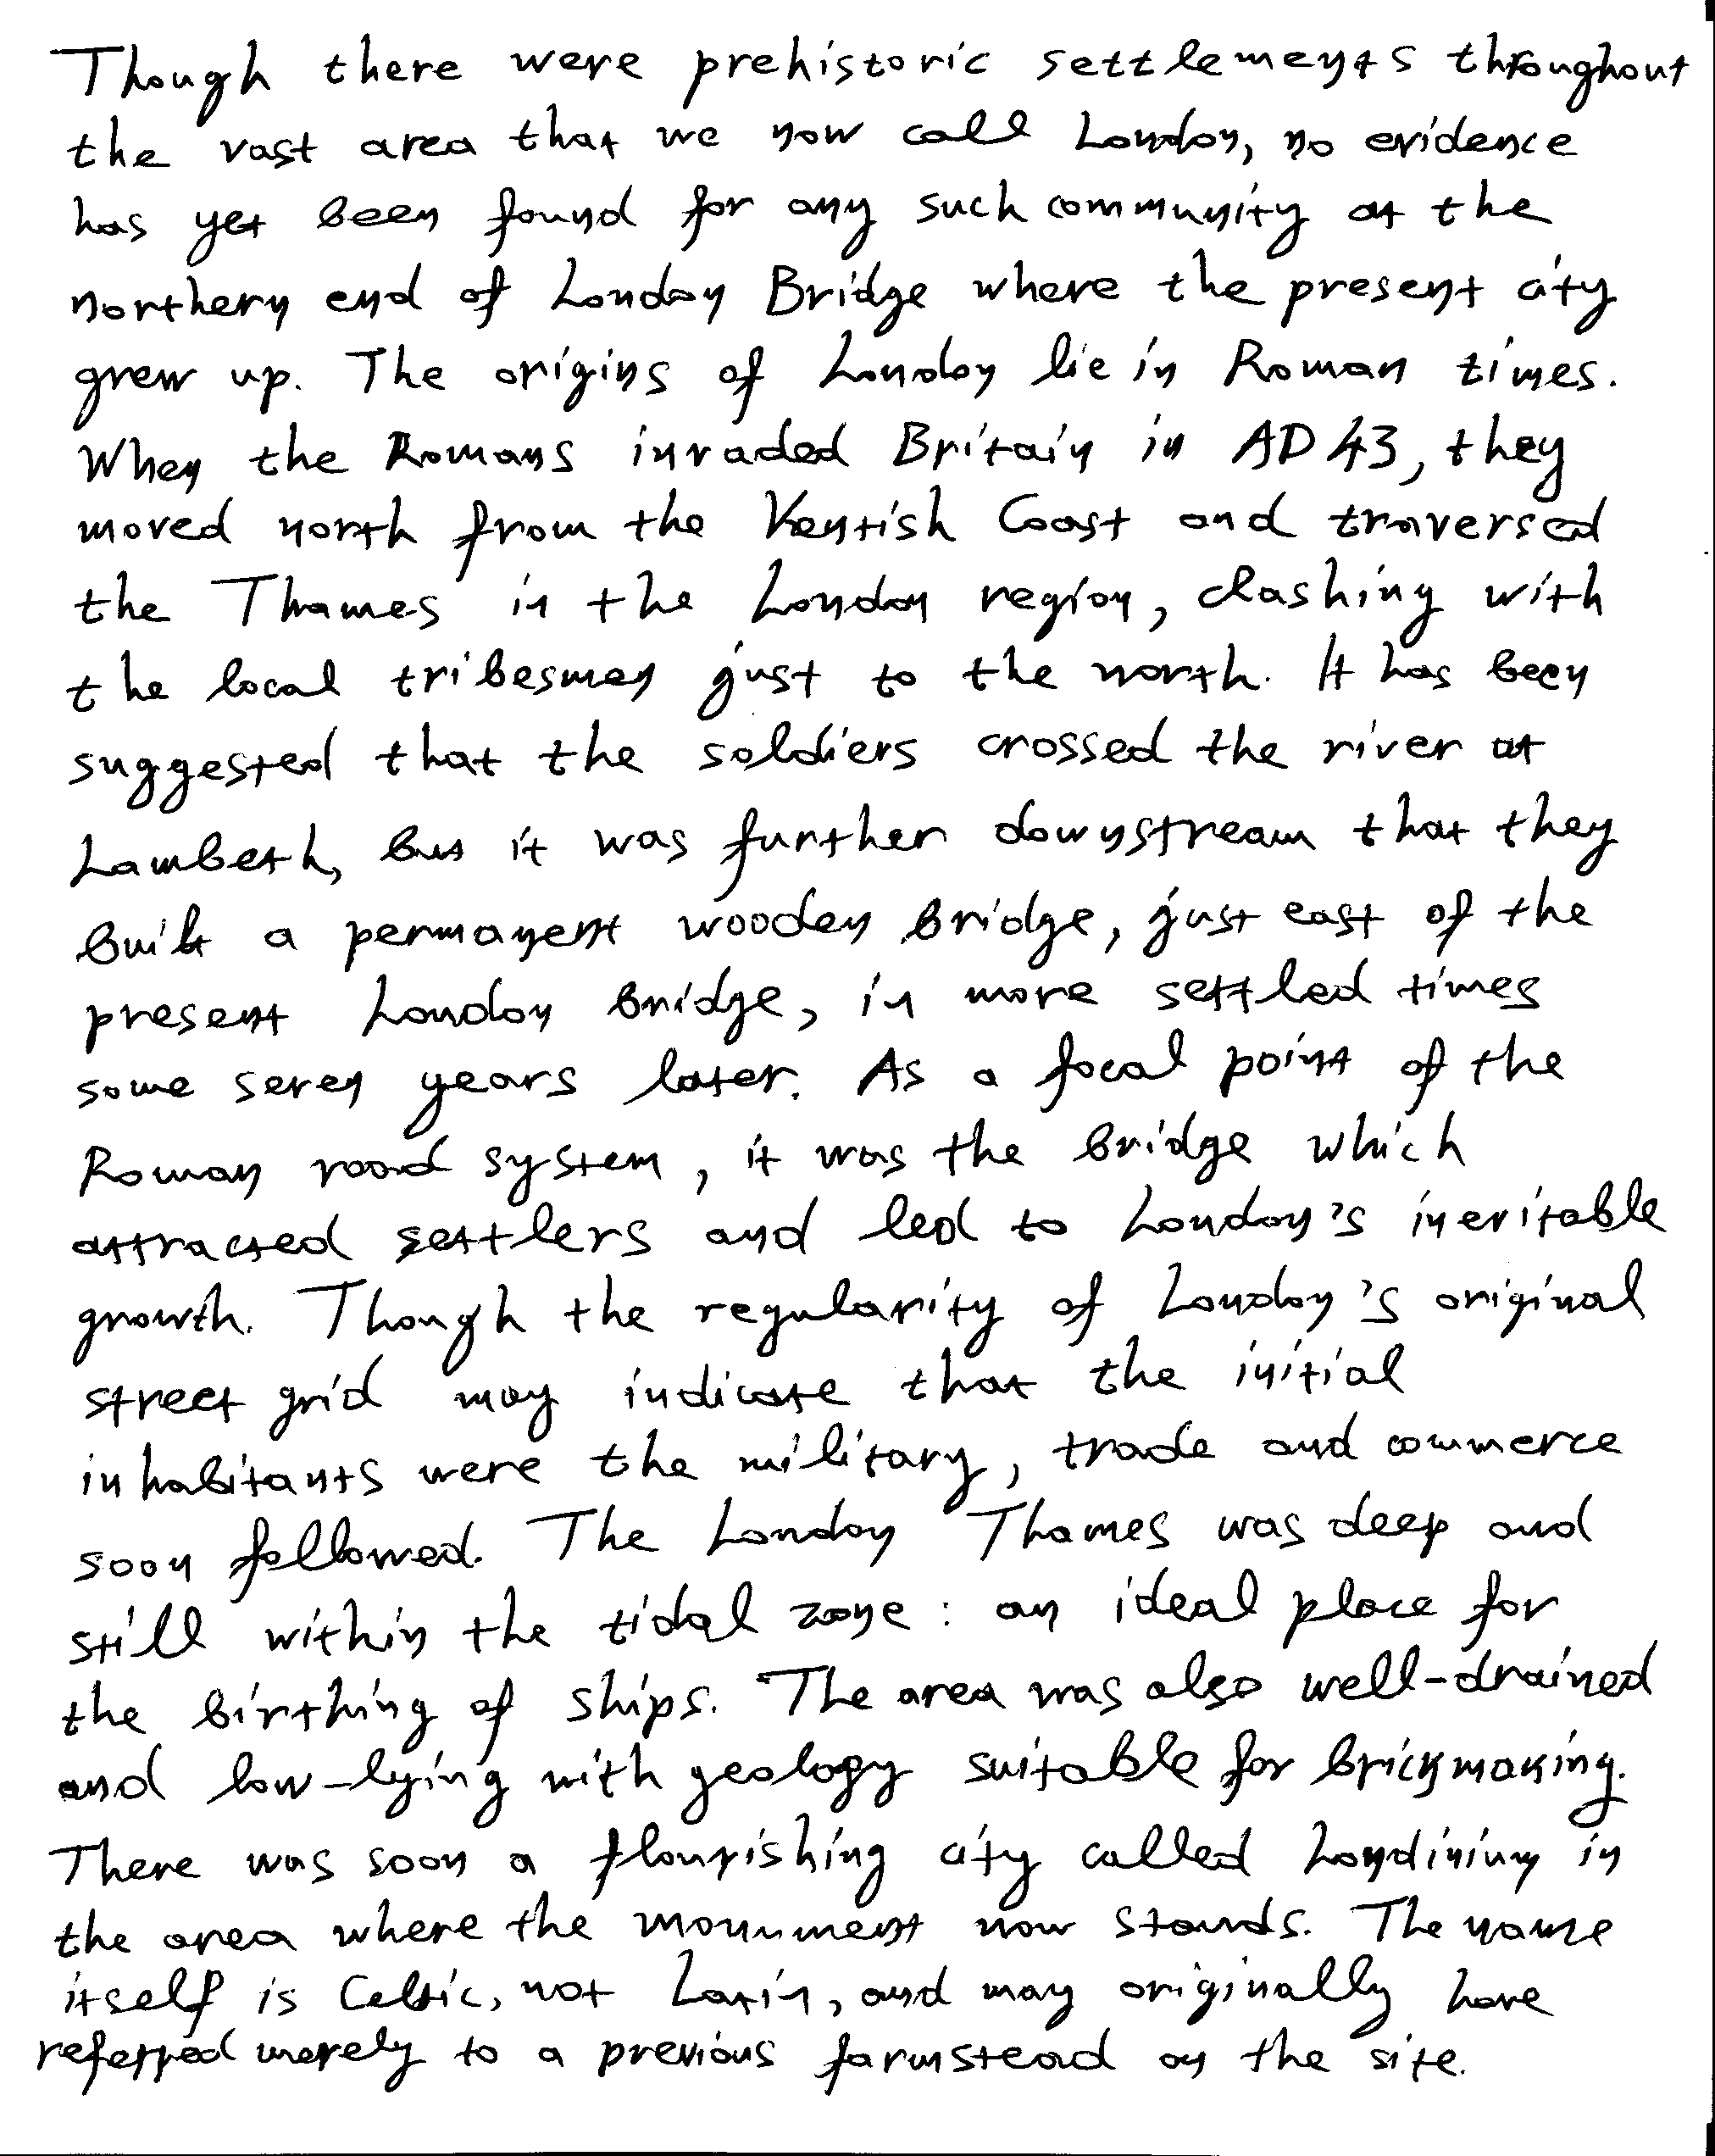 Though there were prehistoric settlements throughout
the vast area that we now call London, no evidence
has yet been found for any such community at the
northern end of London Bridge where the present city
grew up. The origins of London lie in Roman times.
When the Romans invaded Britain in AD 43, they
moved north from the Kentish Coast and traversed
the Thames in the London region, clashing with
the local tribesmen just to the north. It has been
suggested that the soldiers crossed the river at
Lambeth, but it was further downstream that they
built a permanent wooden bridge, just east of the
present London bridge, in more settled times
some seven years later. As a focal point of the
Roman road system, it was the bridge which
attracted settlers and led to London's inevitable
growth. Though the regularity of London's original
street grid may indicate that the initial
inhabitants were the military, trade and commerce
soon followed. The London Thames was deep and
still within the tidal zone: an ideal place for
the birthing of ships. The area was also well-drained
and low-lying with geology suitable for brickmaking.
There was soon a flourishing city called Londinium in
the area where the monument now stands. The name
itself is Celtic, not Latin, and may originally have
referred merely to a previous farmstead on the site.